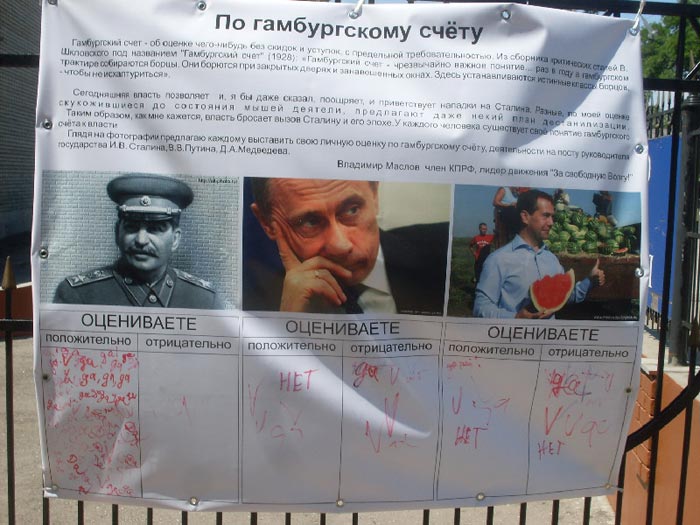 По гамбургскому счёту
Гамбургский счет - об оценке чего-нибудь без скидок и уступок, с предельной требовательностью. Из сборника критических статей В.
Шкловского под названием "Гамбургский счет" (1928): «Гамбургский счет - чрезвычайно важное понятие... раз в году в гамбургском
трактире собираются борцы. Они борются при закрытых дверях и занавешенных окнах. Здесь устанавливаются истинные классы борцов,
- чтобы не исхалтуриться».
Сегодняшняя власть позволяет и, я бы даже сказал, поощряет, и приветствует нападки на Сталина. Разные, по моей оценке
скукожившиеся до состояния мышей деятели, предлагают даже некий план десталинизации.
Таким образом, как мне кажется, власть бросает вызов Сталину и его эпохе. У каждого человека существует своё понятие гамбургского
счёта к власти.
Глядя на фотографии предлагаю каждому выставить свою личную оценку по гамбургскому счёту, деятельности на посту руководителя
государства И.В. Сталина, В.В.Путина, Д.А.Медведева.
Владимир Маслов член КПРФ, лидер движения "За свободную Волгу!"
ОЦЕНИВАЕТЕ ОЦЕНИВАЕТЕ ОЦЕНИВАЕТЕ
положительно отрицательно положительно отрицательно положительно отрицательно
V да да
да, да, да
Да
НЕТ
V да
да V
V
V
НЕТ
да
V V да
НЕТ